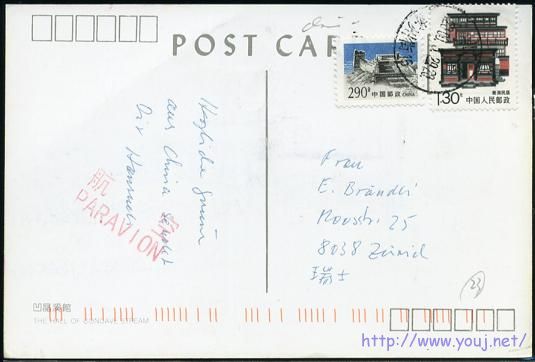 POST CARD
290分 中国邮政 CHINA
1.30元 中国人民邮政
Herzliche Grüsse
aus China sendet
Dir
航
PAR AVION
Frau
E. Brändli
25
8038 Zürich
瑞士
23
凹晶溪館
THE HALL OF CONCAVE STREAM
http://www.youj.net/